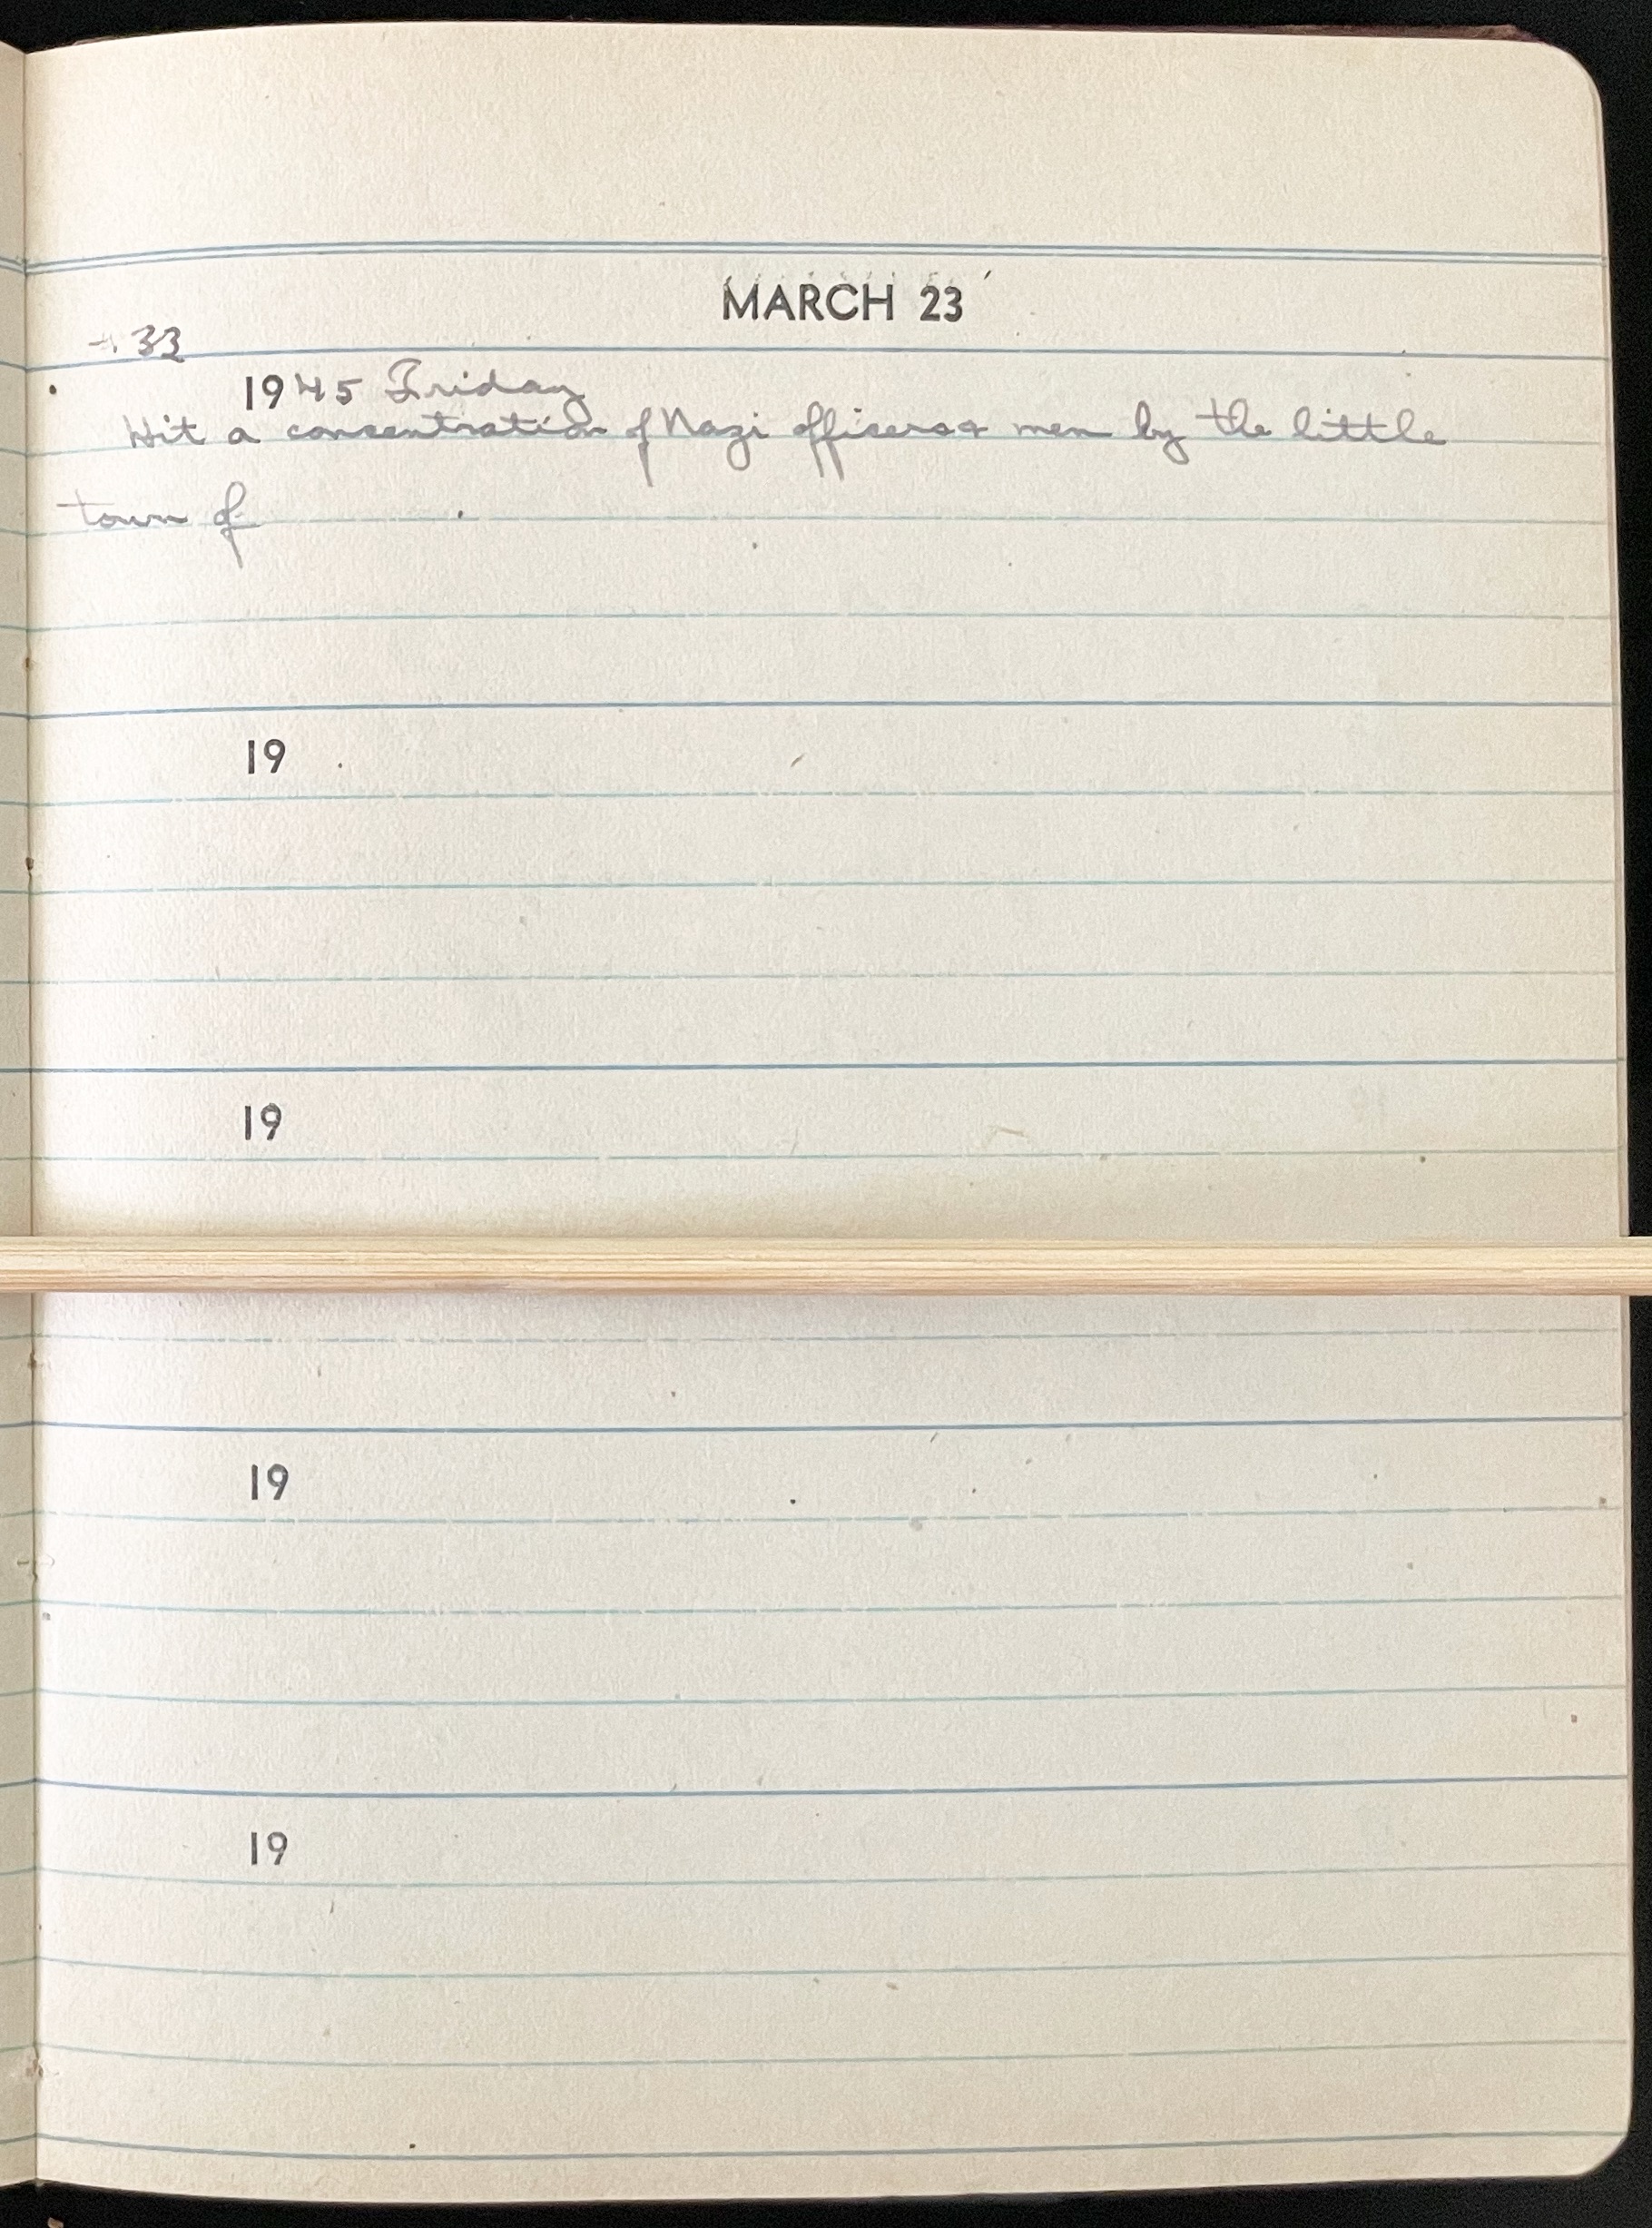 MARCH 23
33
1945 Friday
Hit a concentration of Nazi officers & men by the little
town of
19
19
19
19